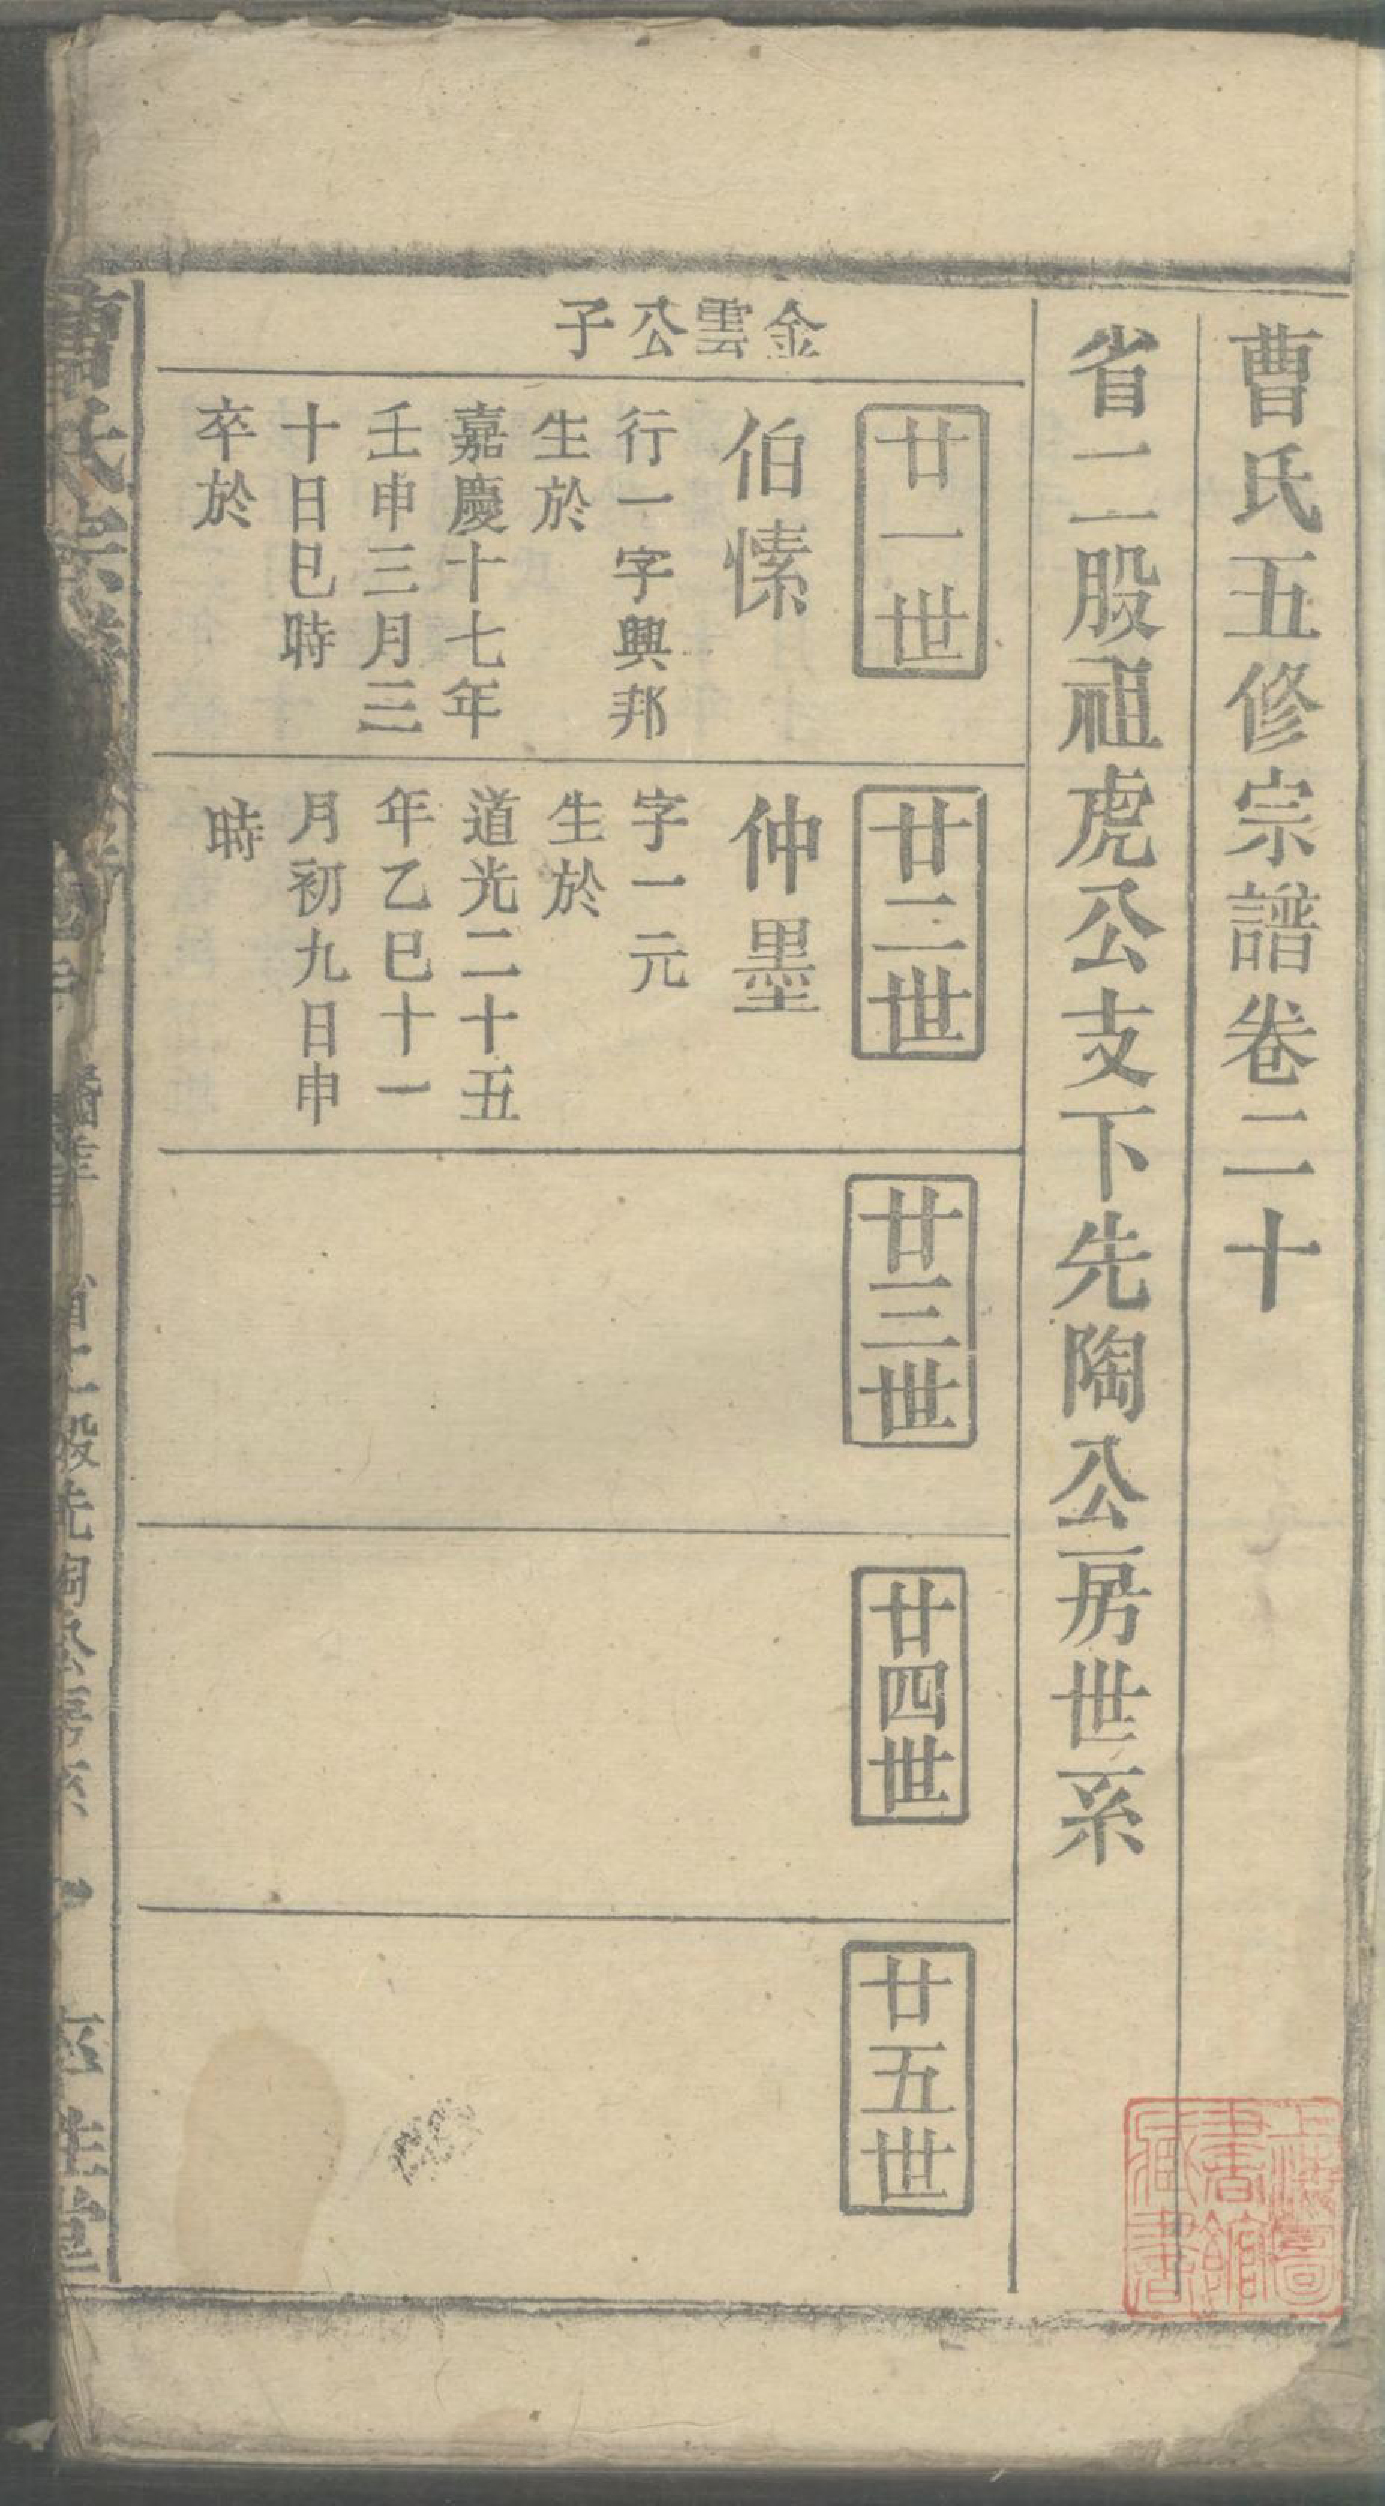 曹氏五修宗譜卷二十
省二股祖虎公支下先陶公房世系
金雲公子
廿一世
伯愫
行一字興邦
生於
嘉慶十七年
壬申三月三
十日巳時
卒於
廿二世
仲墨
字一元
生於
道光二十五
年乙巳十一
月初九日申
時
廿三世
廿四世
廿五世
上海圖
書館
藏書